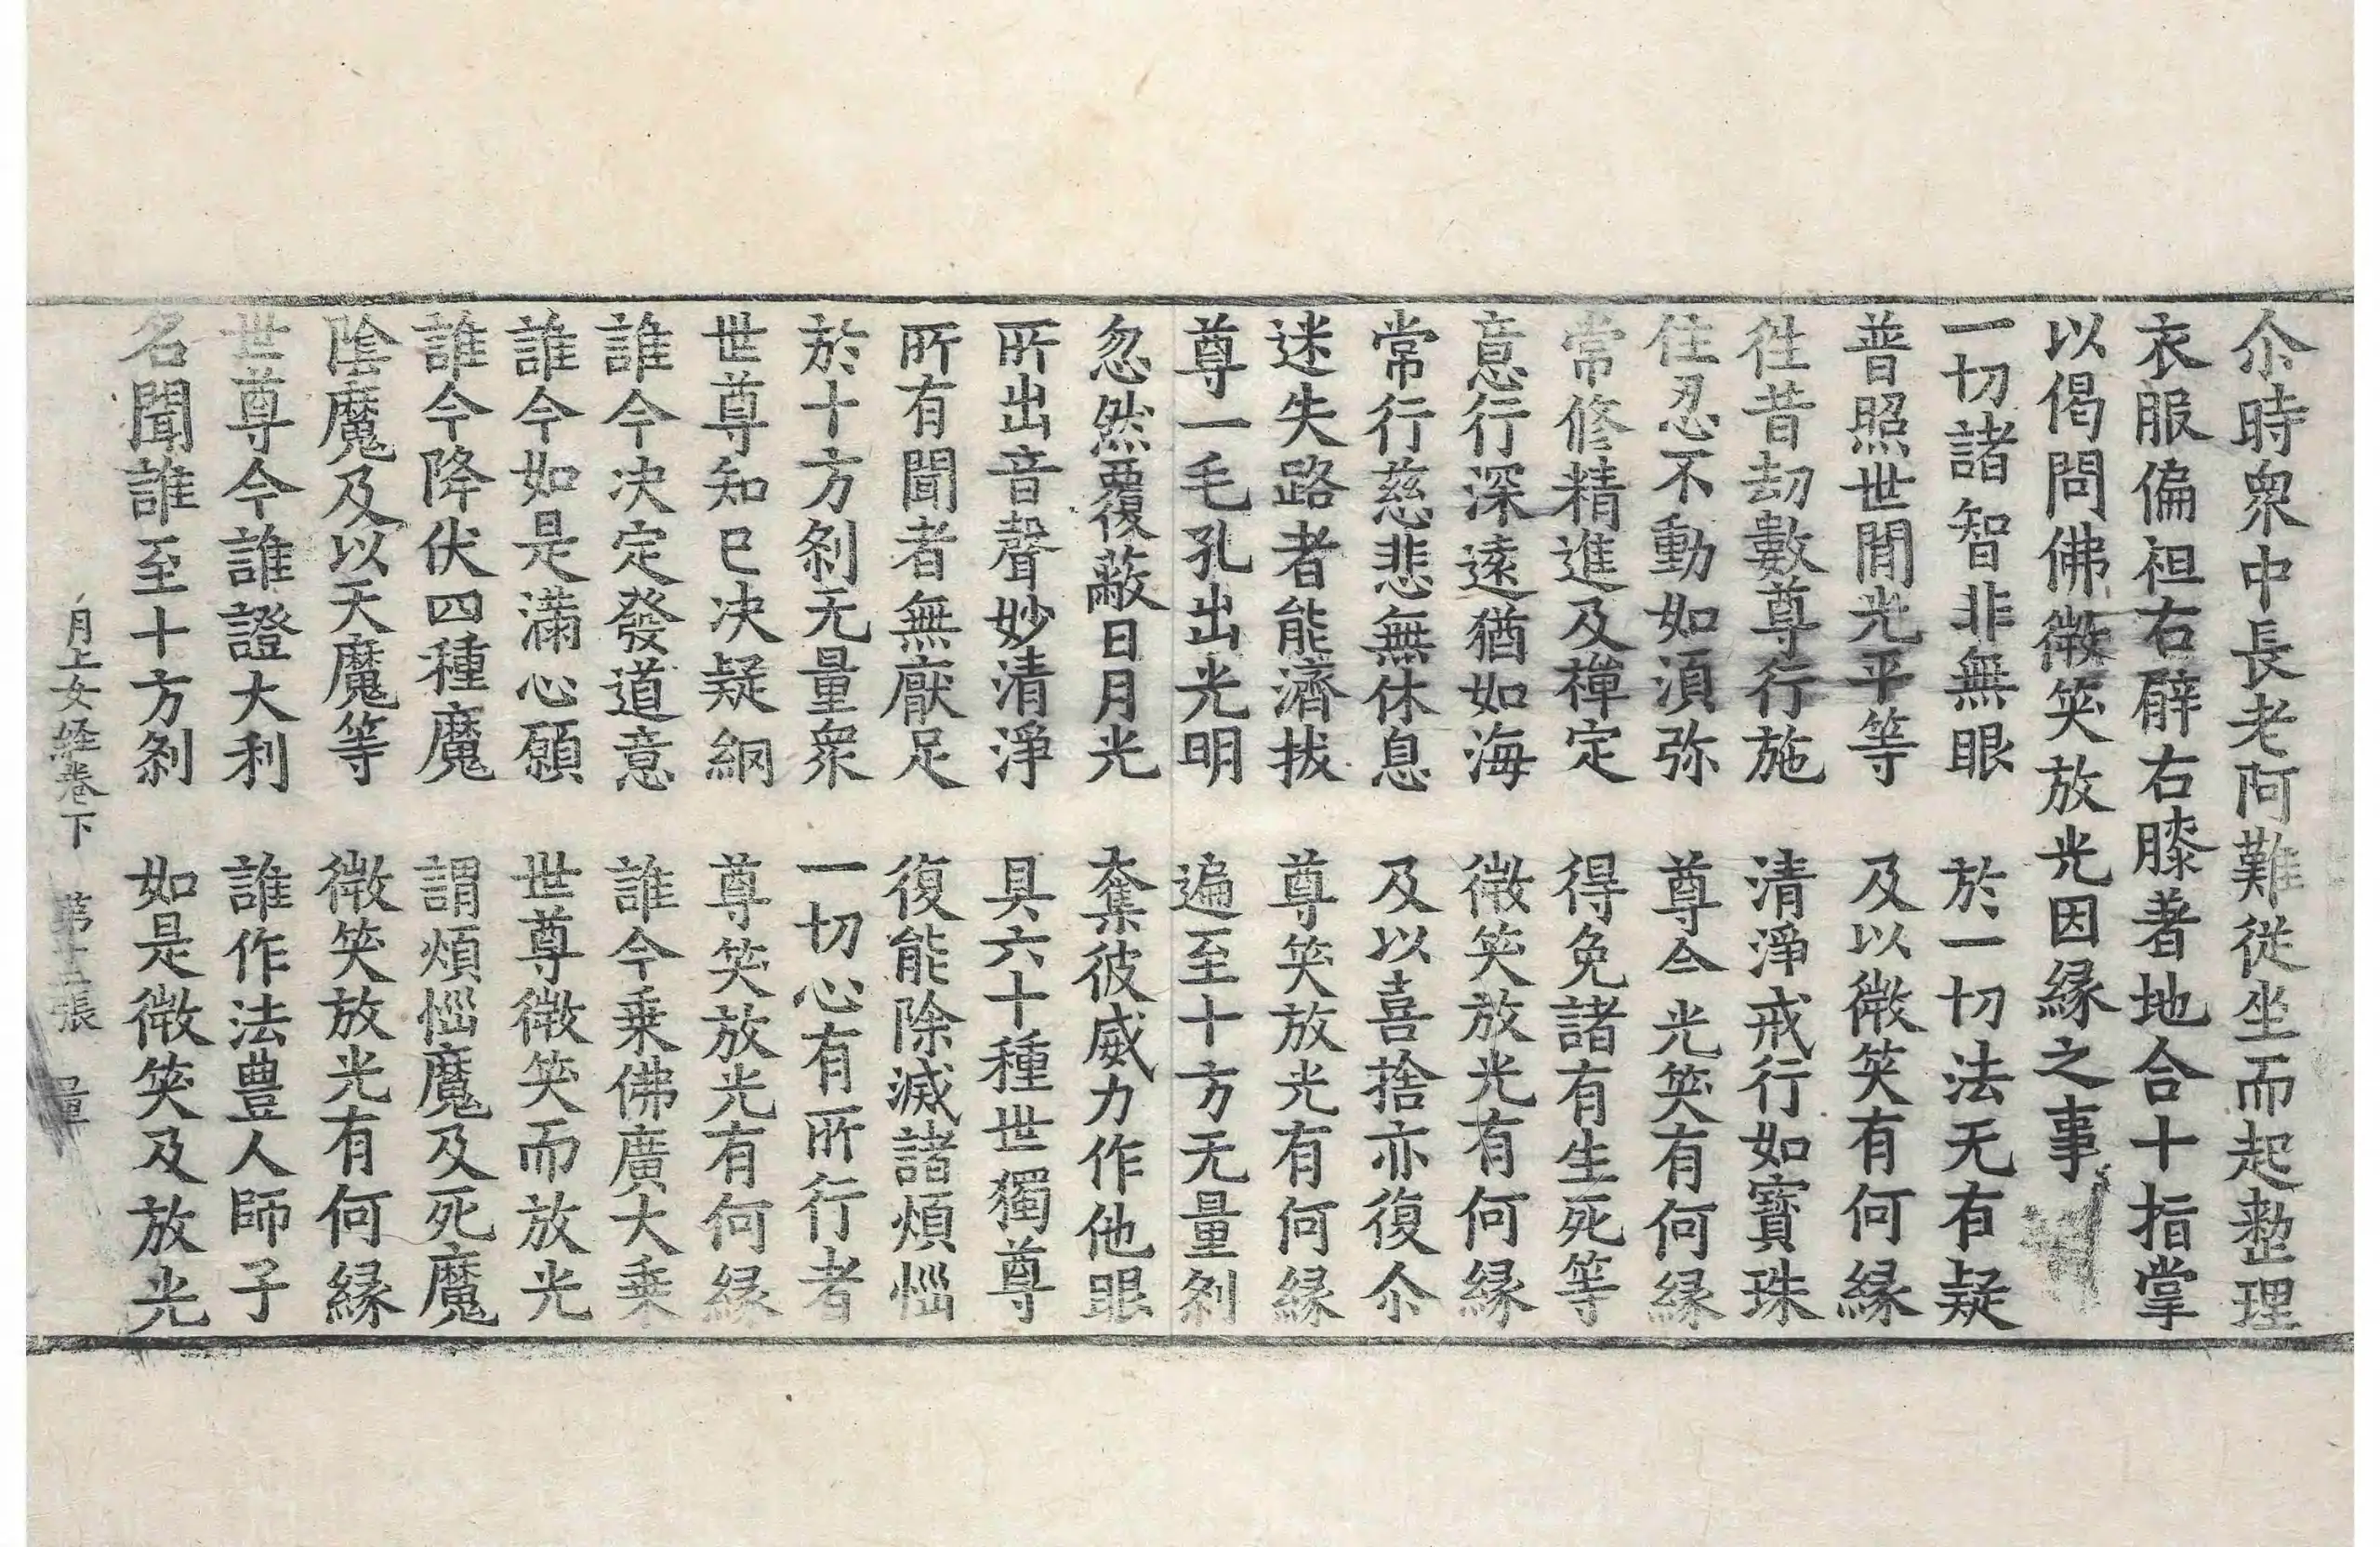 尒時衆中長老阿難從坐而起整理
衣服偏袒右臂右膝著地合十指掌
以偈問佛微笑放光因緣之事
一切諸智非無眼　於一切法无有疑
普照世閒光平等　及以微笑有何緣
徃昔劫數尊行施　清淨戒行如寶珠
住忍不動如湏弥　尊今光笑有何緣
常修精進及禪定　得免諸有生死等
意行深遠猶如海　微笑放光有何緣
常行慈悲無休息　及以喜捨亦復尒
迷失路者能濟拔　尊笑放光有何緣
尊一毛孔出光明　遍至十方无量剎
忽然覆蔽日月光　奪彼威力作他眼
所出音聲妙清淨　具六十種世獨尊
所有聞者無厭足　復能除滅諸煩惱
於十方剎无量衆　一切心有所行者
世尊知已决疑網　尊笑放光有何緣
誰今决定發道意　誰今乗佛廣大乗
誰今如是滿心願　世尊微笑而放光
誰今降伏四種魔　謂煩惱魔及死魔
陰魔及以天魔等　微笑放光有何緣
世尊今誰證大利　誰作法豊人師子
名聞誰至十方剎　如是微笑及放光
月上女経卷下　第十五張　量